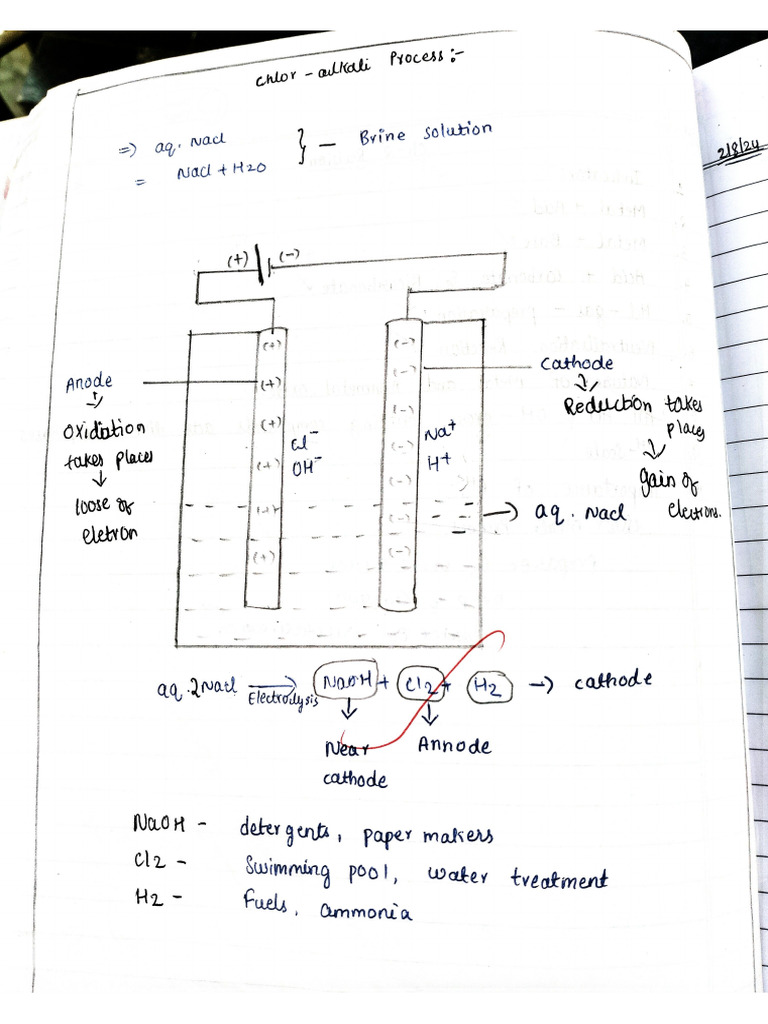 Chlor - alkali Process :-
2/8/24
=> aq. NaCl
= NaCl + H2O } - Brine solution
(+) (-)
(+) (-)
(+) (-)
(+) (-)
(+) (-)
(+) (-)
(+) (-)
Anode
Oxidation
takes places
loose of
eletron
Cl-
OH-
Na+
H+
Cathode
Reduction takes
places
gain of
electrons.
aq. NaCl
aq. 2NaCl Electrolysis NaOH + Cl2 + H2 -> cathode
Near
cathode
Annode
NaOH - detergents, paper makers
Cl2 - Swimming pool, water treatment
H2 - Fuels, ammonia